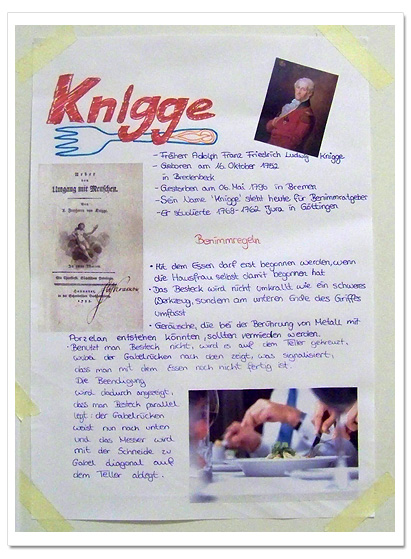 Knigge
- Friherr Adolph Franz Friedrich Ludwig Knigge
- Geboren am 16. Oktober 1752
in Bredenbeck
- Gestorben am 06. Mai 1796 in Bremen
- Sein Name 'Knigge' steht heute für Benimmratgeber
- Er studierte 1769-1762 Jura in Göttingen
Ueber
den
Umgang mit Menschen.
Benimmregeln
• Mit dem Essen darf erst begonnen werden, wenn
die Hausfrau selbst damit begonnen hat
• Das Besteck wird nicht umkrallt wie ein schweres
Werkzeug, sondern am unteren Ende des Griffes
umfasst
• Geräusche, die bei der Berührung von Metall mit
Porzelan entstehen könnten, sollten vermieden werden.
• Benutzt man Besteck nicht, wird es auf dem Teller gekreuzt,
wobei der Gabelrücken nach oben zeigt, was signalisiert,
dass man mit dem Essen noch nicht fertig ist.
Die Beendigung
wird dadurch angezeigt,
das man Besteck parallel
legt: der Gabelrücken
weist nun nach unten
und das Messer wird
mit der Schneide zu
Gabel diagonal auf
dem Teller ablegt.